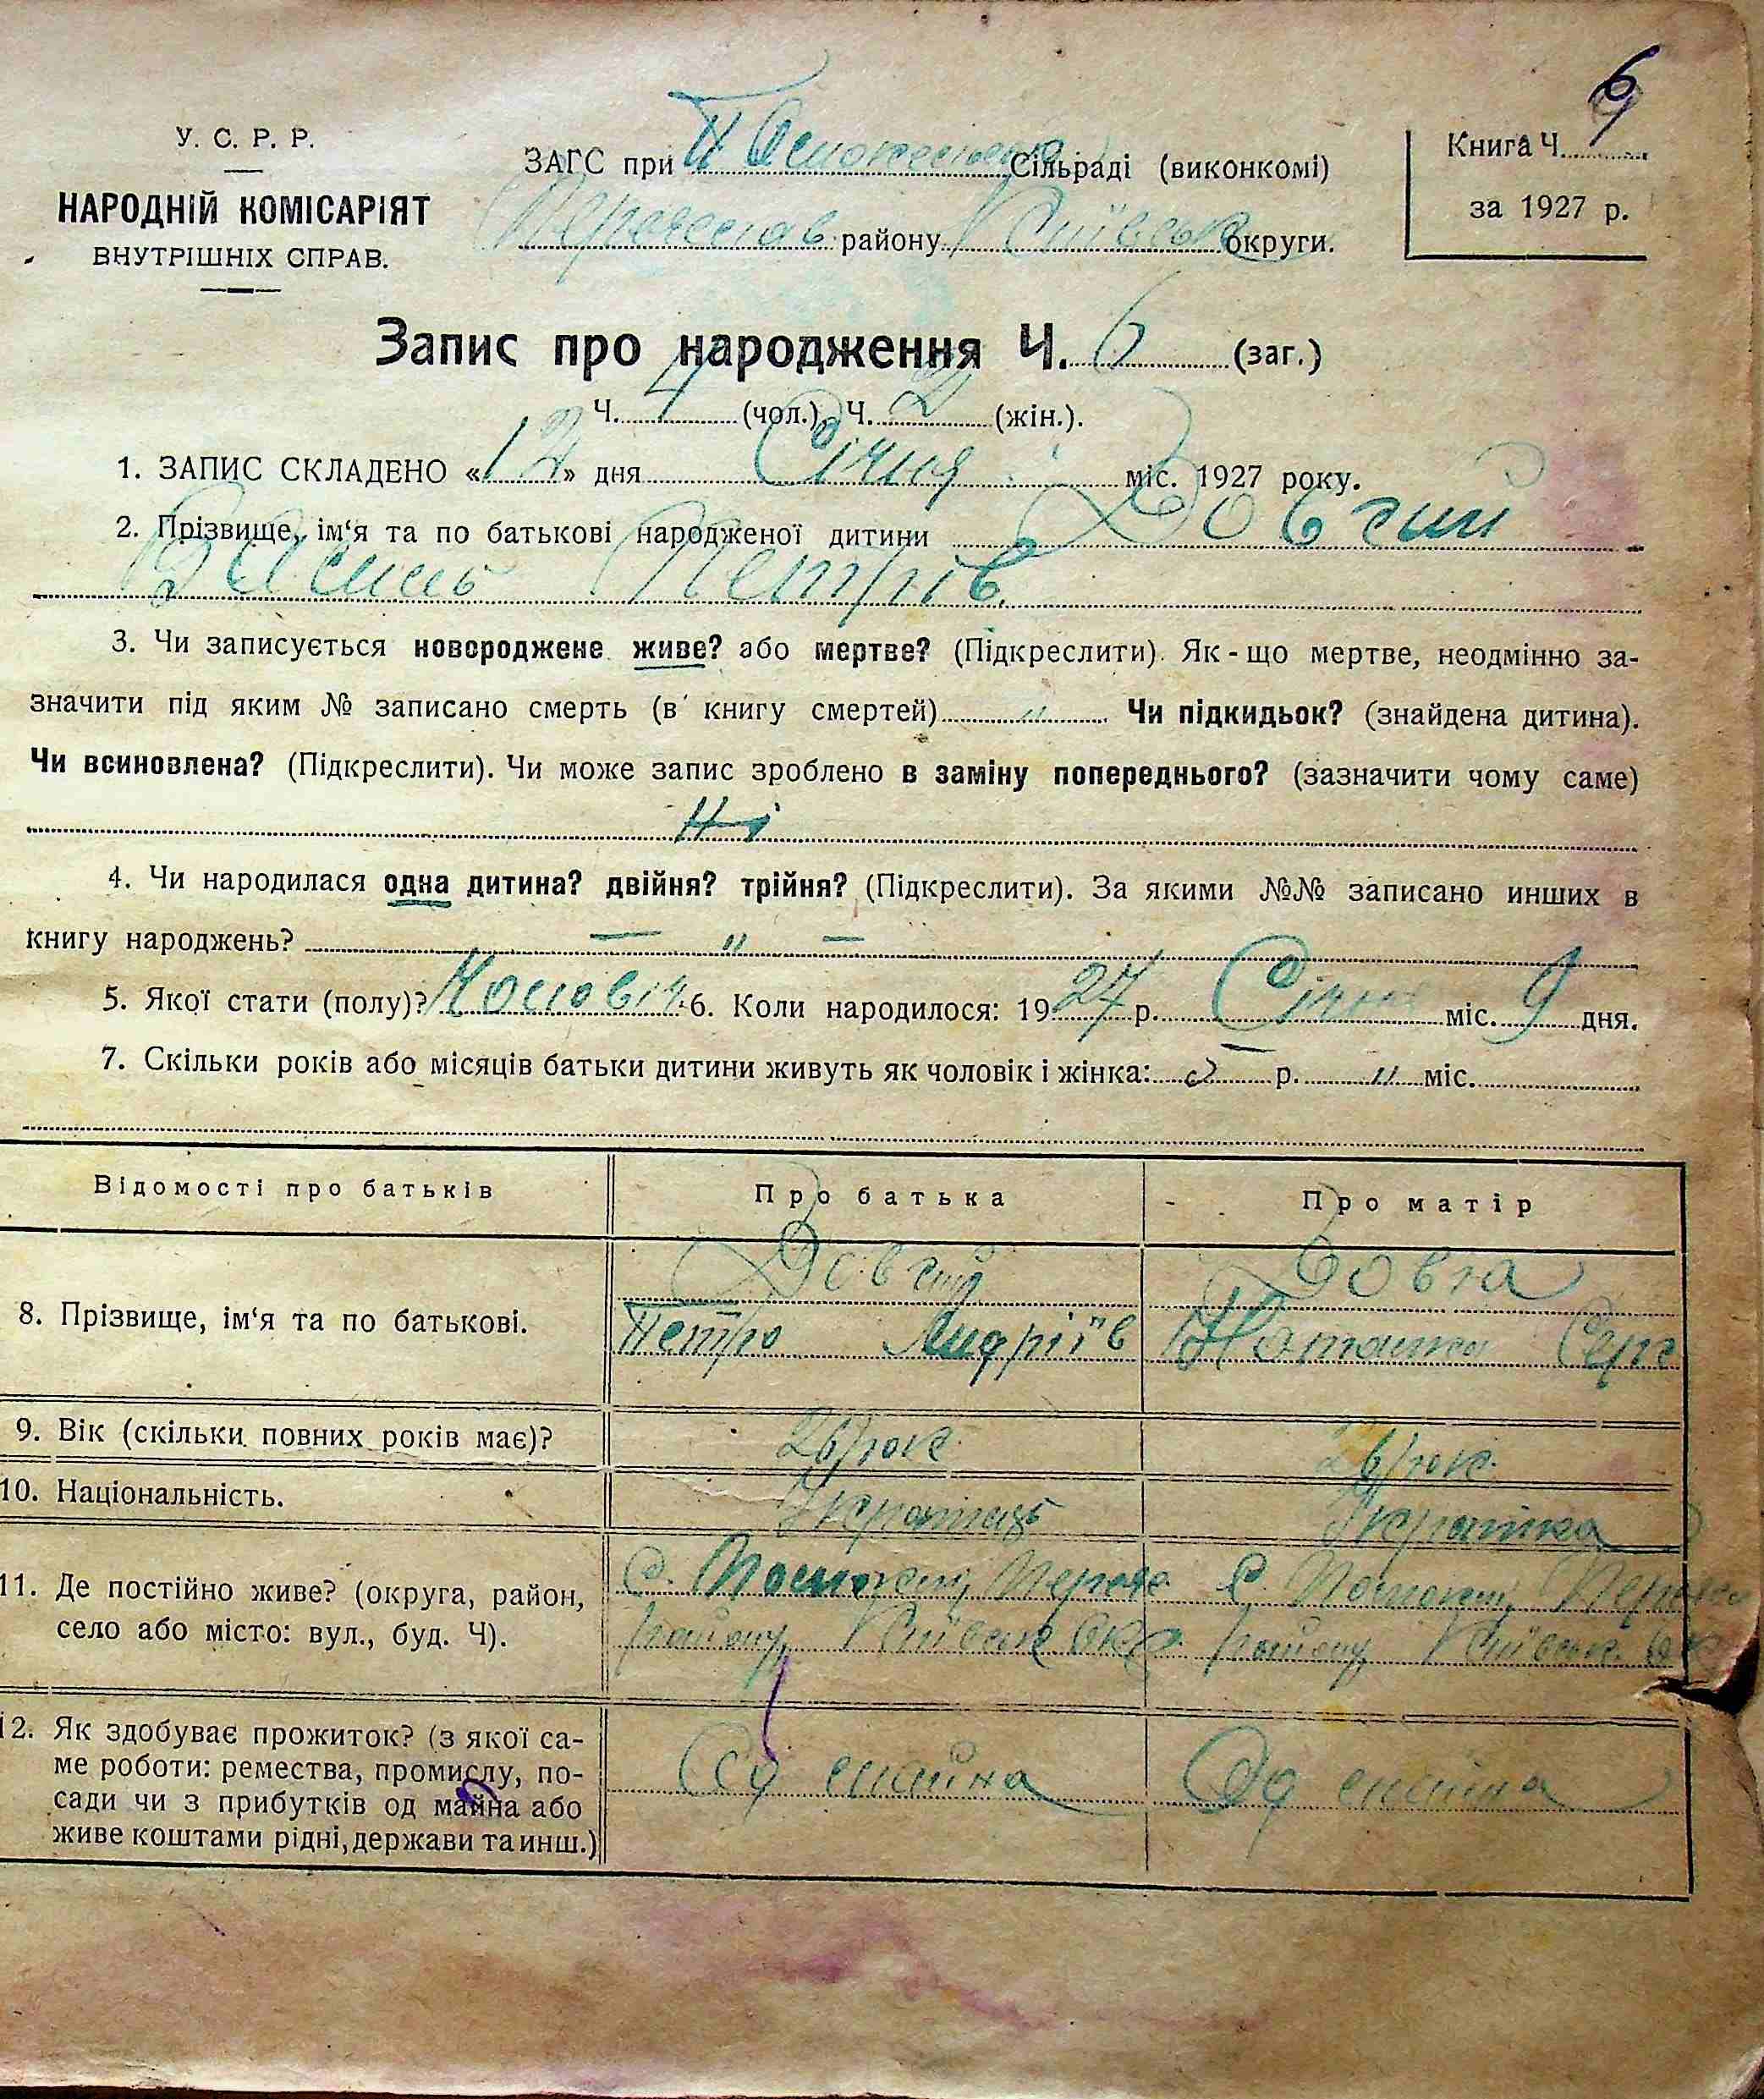 6
У. С. Р. Р.
НАРОДНІЙ КОМІСАРІЯТ
ВНУТРІШНІХ СПРАВ.
ЗАГС при Сільраді (виконкомі)
району Київськ округи.
Книга Ч.
за 1927 р.
Запис про народження Ч. 6 (заг.)
Ч. 4 (чол.) Ч. 2 (жін.).
1. ЗАПИС СКЛАДЕНО «12» дня Січня міс. 1927 року.
2. Прізвище, ім‘я та по батькові народженої дитини Довгий
Василь Петрів.
3. Чи записується новороджене живе? або мертве? (Підкреслити). Як-що мертве, неодмінно за-
значити під яким № записано смерть (в книгу смертей) „ Чи підкидьок? (знайдена дитина).
Чи всиновлена? (Підкреслити). Чи може запис зроблено в заміну попереднього? (зазначити чому саме)
Ні
4. Чи народилася одна дитина? двійня? трійня? (Підкреслити). За якими №№ записано инших в
книгу народжень? — „ —
5. Якої стати (полу)? Чоловіч. 6. Коли народилося: 1927 р. Січня міс. 9 дня.
7. Скільки років або місяців батьки дитини живуть як чоловік і жінка: р. „ міс.
Відомості про батьків Про батька Про матір
8. Прізвище, ім‘я та по батькові.
Довгий Довга
Петро Андріїв Наталка Серг
9. Вік (скільки повних років має)? 26 рок. 26 рок.
10. Національність. Українець Українка
11. Де постійно живе? (округа, район,
село або місто: вул., буд. Ч).
С. С.
району Київськ. Окр. району Київськ. Ок
12. Як здобуває прожиток? (з якої са-
ме роботи: ремества, промислу, по-
сади чи з прибутків од майна або
живе коштами рідні, держави та инш.)
Од майна Од майна